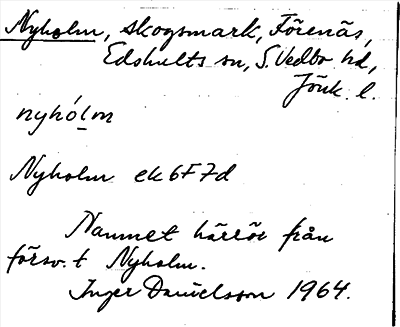 Nyholm, skogsmark, Förenäs,
Edshults sn, S. Vedbo hd,
Jönk. l.
nyhólm
Nyholm ek 6F7d
Namnet härrör från
försv. t Nyholm.
Inger Danielsson 1964.